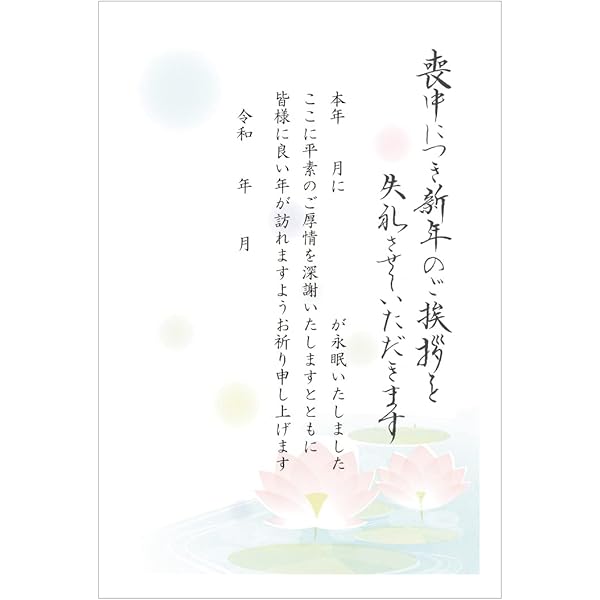 喪中につき新年のご挨拶を
失礼させていただきます
本年　月に　　　　が永眠いたしました
ここに平素のご厚情を深謝いたしますとともに
皆様に良い年が訪れますようお祈り申し上げます
令和　年　月